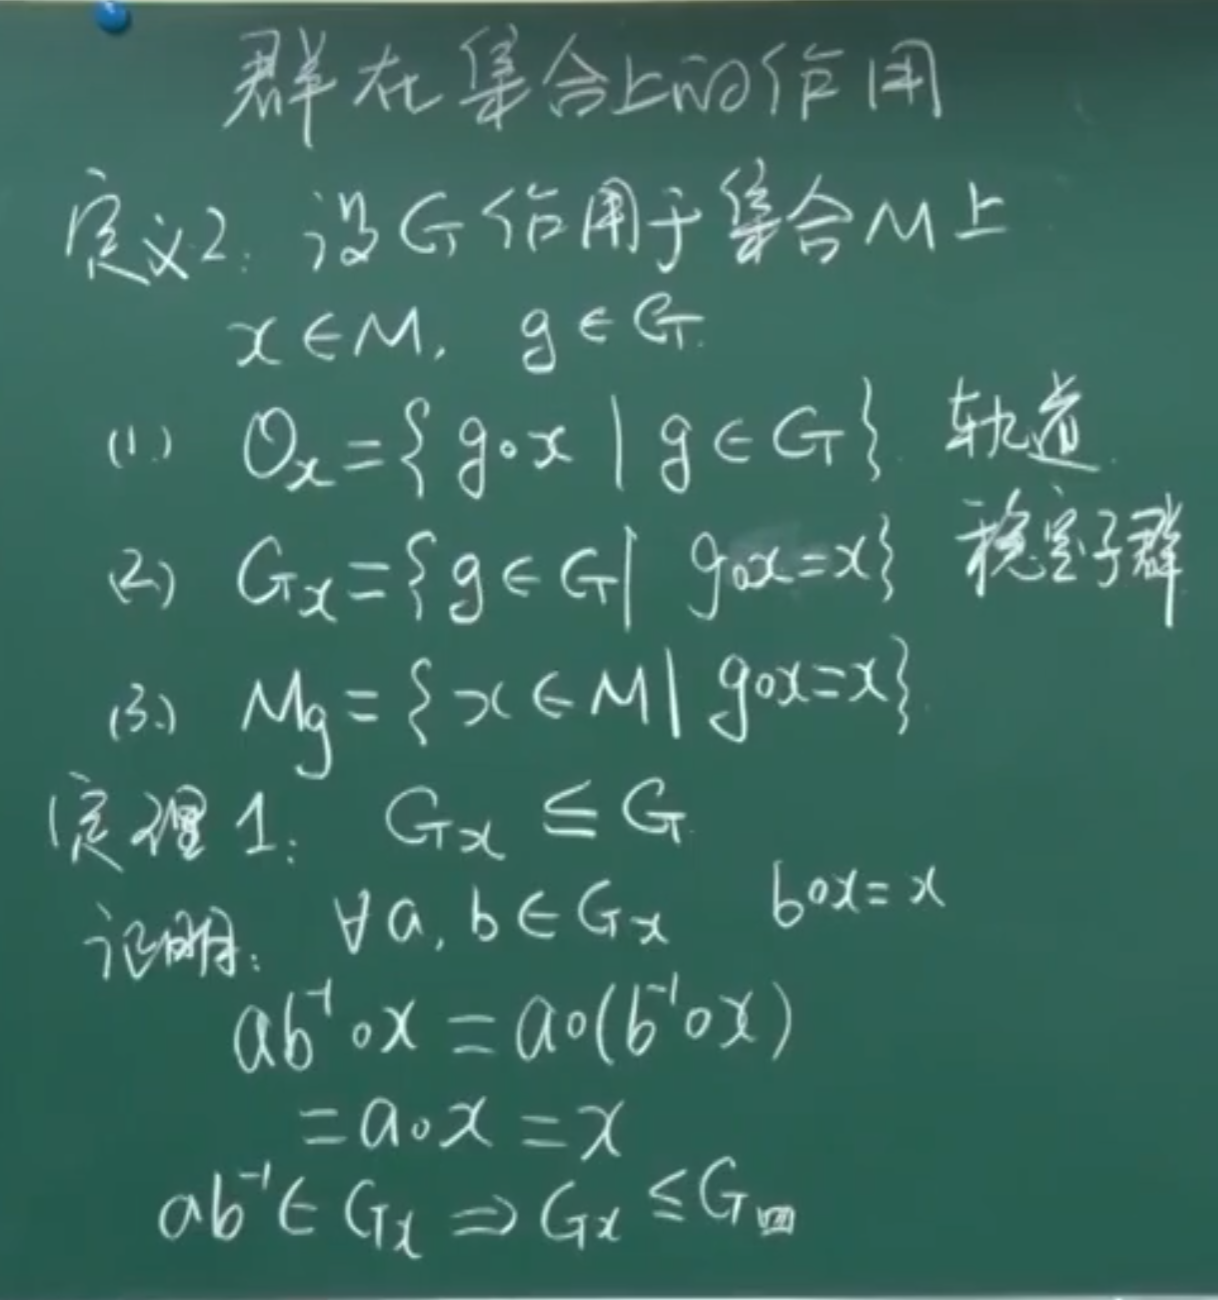 群在集合上的作用
定义2: 设G作用于集合M上
x∈M, g∈G.
(1) Oₓ={g∘x | g∈G} 轨道
(2) Gₓ={g∈G| g∘x=x} 稳定子群
(3) M_g={x∈M| g∘x=x}
定理1: Gₓ ≤ G
证明: ∀a, b∈Gₓ b∘x=x
ab⁻¹∘x=a∘(b⁻¹∘x)
=a∘x=x
ab⁻¹∈Gₓ⇒Gₓ≤G